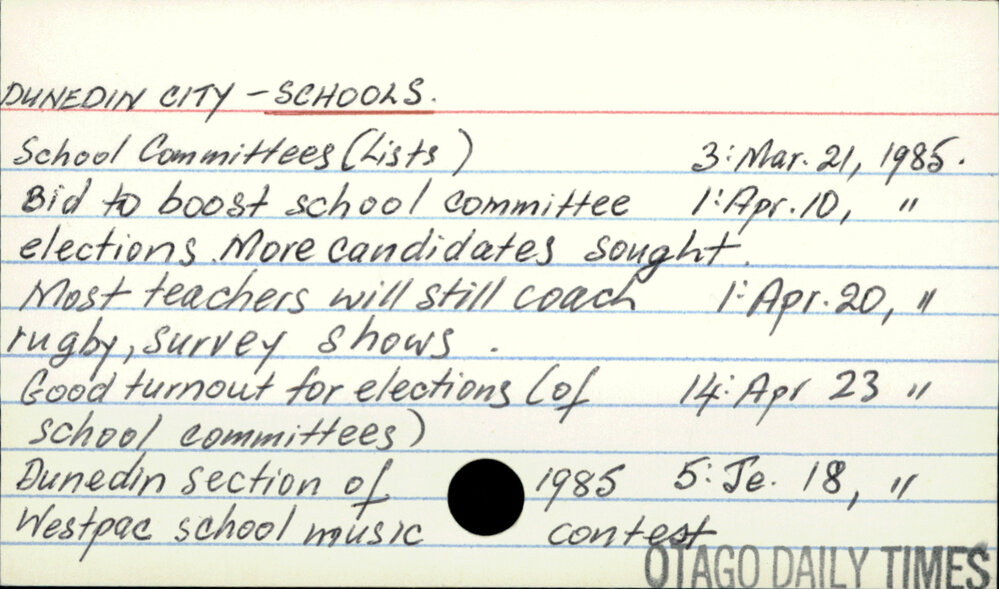 DUNEDIN CITY - SCHOOLS.
School Committees (Lists) 3: Mar. 21, 1985.
Bid to boost school committee 1: Apr. 10, "
elections. More candidates sought.
Most teachers will still coach 1: Apr. 20, "
rugby, survey shows.
Good turnout for elections (of 14: Apr 23 "
school committees)
Dunedin section of 1985 5: Je. 18, "
Westpac school music contest
OTAGO DAILY TIMES